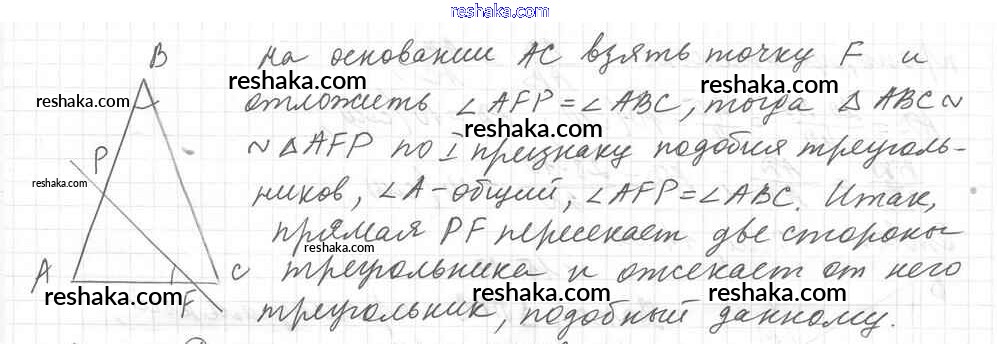 reshaka.com
B на основании AC взять точку F и
reshaka.com reshaka.com
отложить ∠AFP=∠ABC, тогда △ABC∾
reshaka.com
P ∾△AFP по I признаку подобия треуголь-
reshaka.com reshaka.com
ников, ∠A-общий, ∠AFP=∠ABC. Итак,
прямая PF пересекает две стороны
reshaka.com
A C треугольника и отсекает от него
reshaka.com reshaka.com reshaka.com
F треугольник, подобный данному.